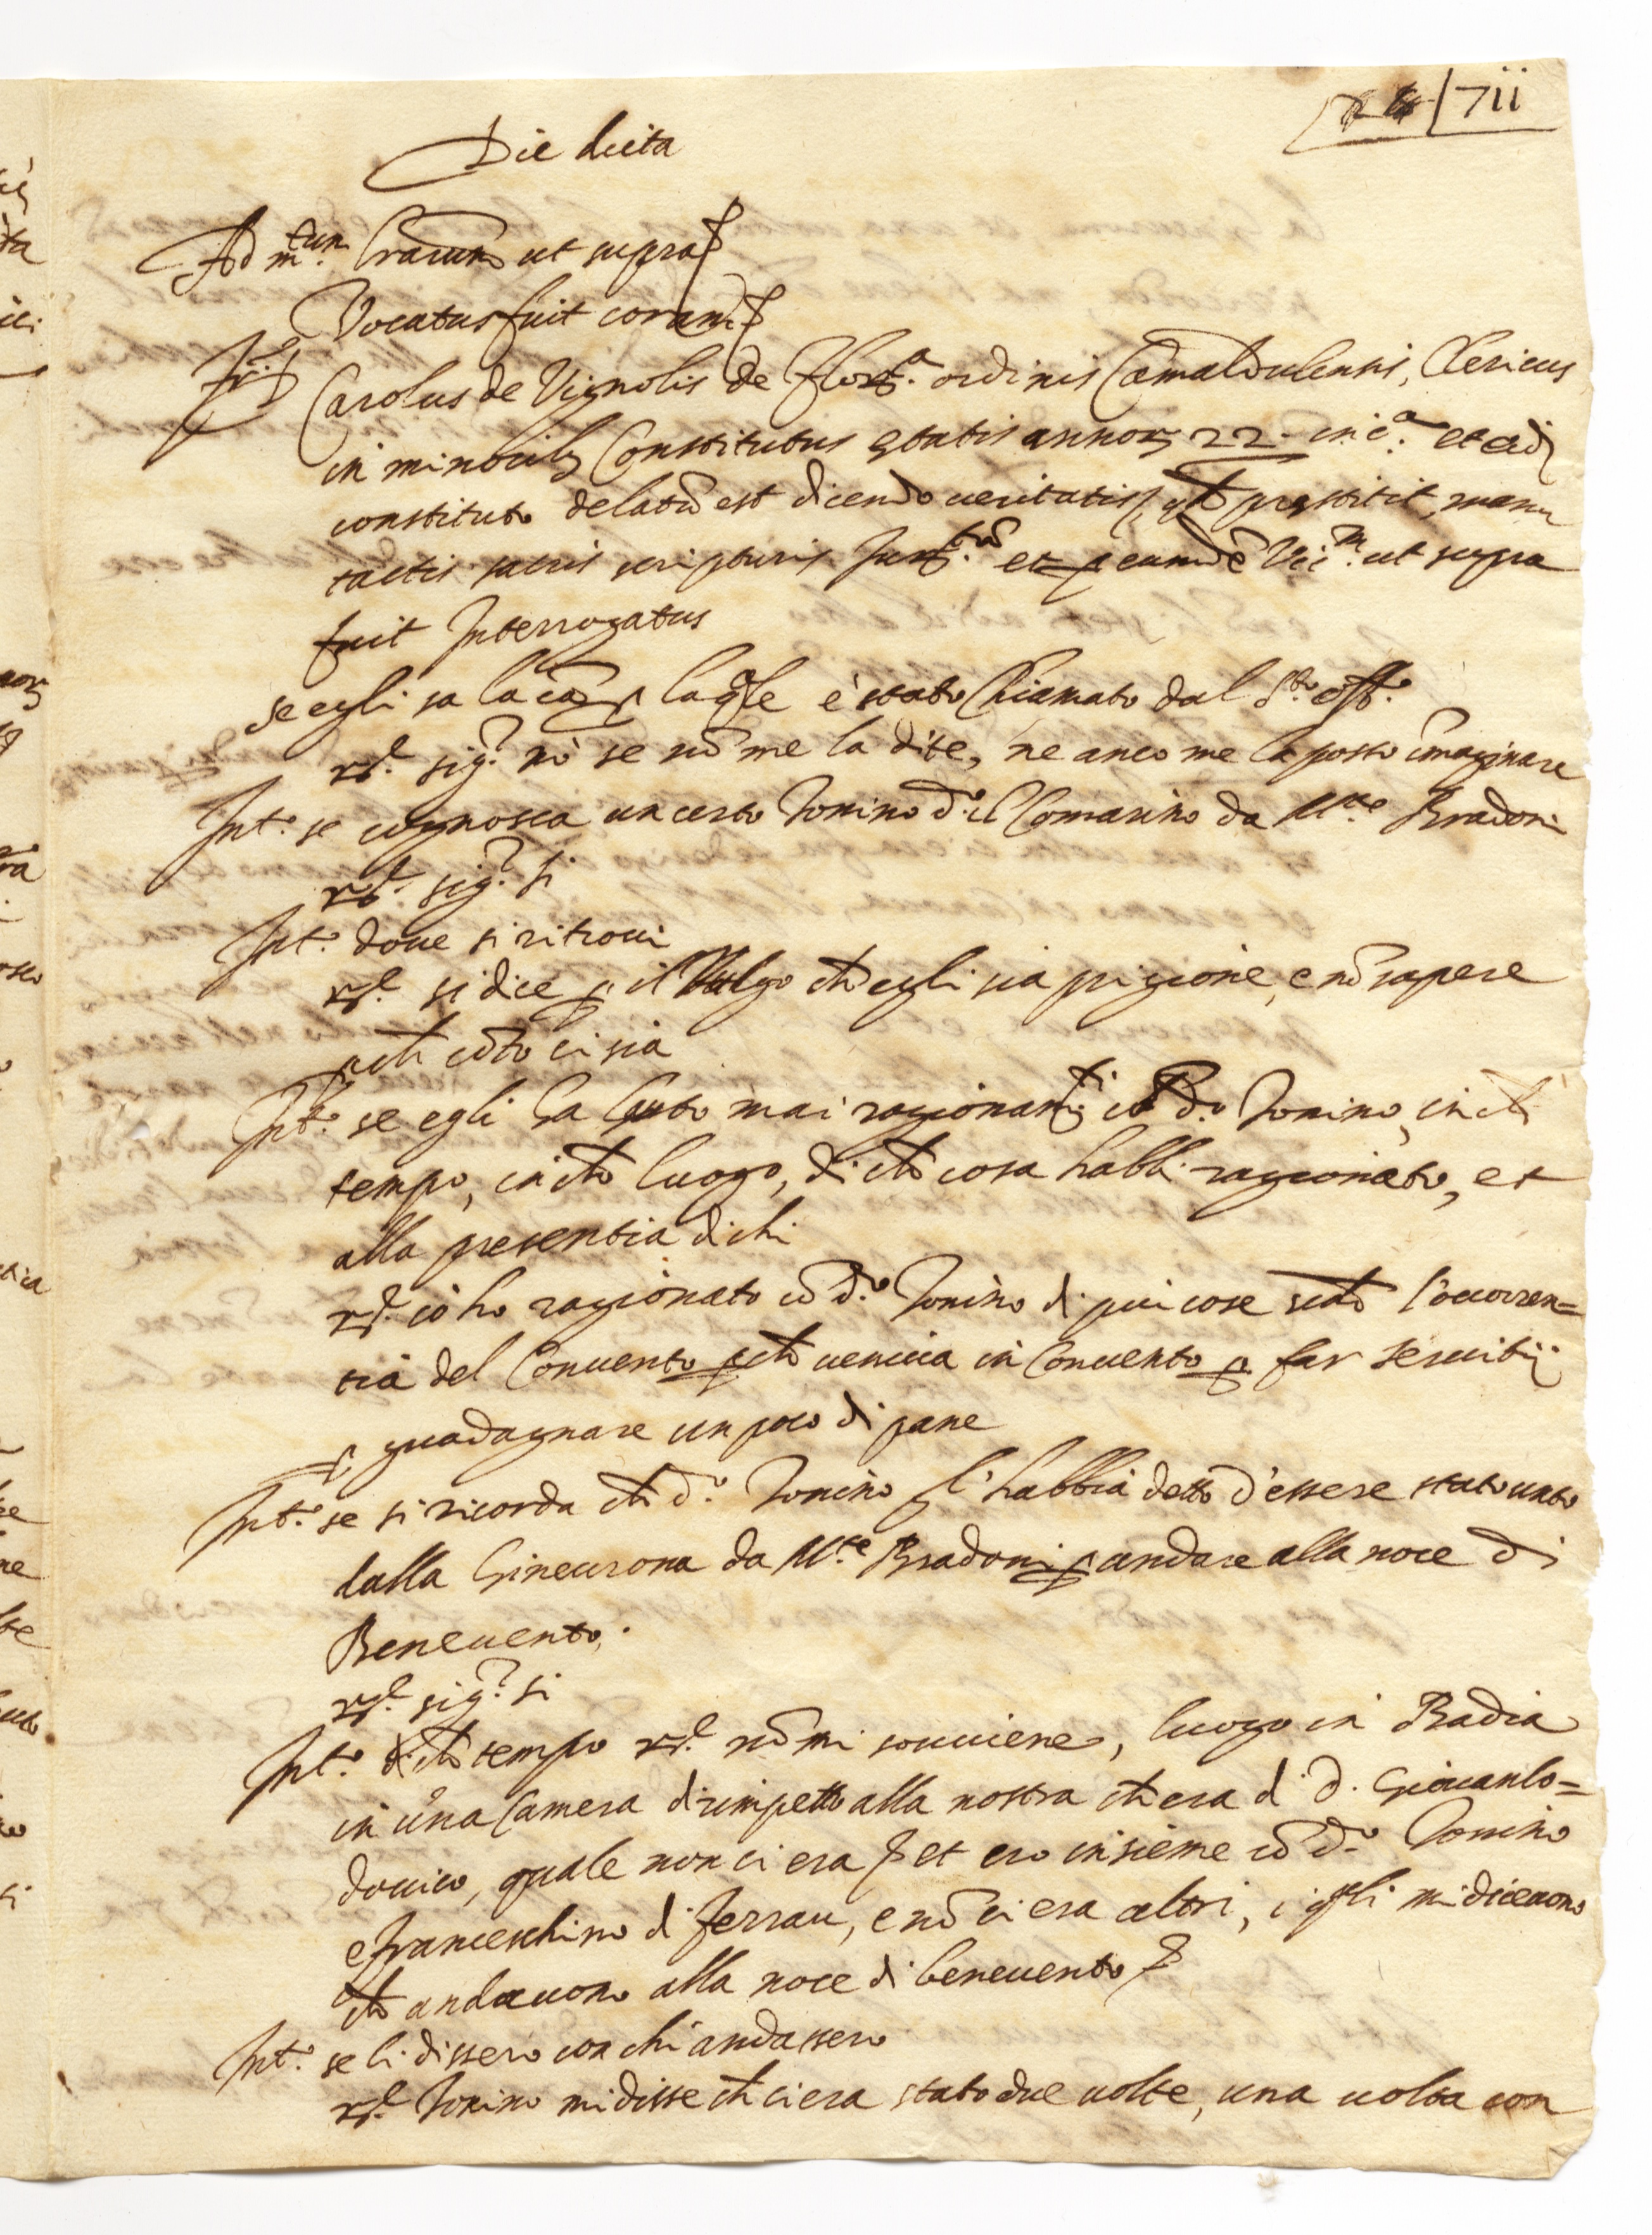 711
Die dicta
Ad m.tum Gravium ut supra
Vocatus fuit coram
Fr. Carolus de Vignolis de Flor.a ordinis Camaldulensis, Clericus
in minorib; Constitutus etatis annor; 22. in c.a et cui
constituto delatū est dicendo veritatis, q̄d prestitit, manu
tactis sacris scripturis Jur.to et p eundē Vic.m ut supra
fuit Interrogatus
se egli sa la cā p la q̄le è stato Chiamato dal S.to off.o
rs.e sig.r nò se nō me la dite, ne anco me la posso imaginare
Int.o se cognosca un certo Tonino d.o il Comasino da M.te Bradoni
rs.e sig.r si
Int.o doue si ritroui
rs.e si dice p il Vulgo ch̄ egli sia prigione, e nō sapere
p ch̄ cōto ci sia
Int.o se egli ha hauto mai ragionam.ti cō d.o Tonino, in ch̄
tempo, in ch̄ luogo, di ch̄ cosa habbi ragionato, et
alla presentia di chi
rs.e io ho ragionato cō d.o Tonino di piu cose secōdo l'occorren=
tia del Conuento p ch̄ veniua in Conuento p far seruitij
p guadagnare un poco di pane
Int.o se si ricorda ch̄ d.o Tonino gl'habbia detto d'essere stato unto
dalla Gineurona da M.te Bradoni p andare alla noce di
Beneuento.
rs.e sig.r si
Int.o ch̄ tempo rs.e nō mi souuiene, luogo in Badia
in una Camera dirimpetto alla nostra ch̄ era d. D. Giouanlo=
douico, quale non ci era et ero insieme cō d.o Tonino
e Franceschino di Ferrau, e nō ci era altri, i q̄li mi diceuono
ch̄ andauono alla noce di beneuento
Int.o se li dissero con chi andassero
rs.e Tonino mi disse ch̄ ci era stato due uolte, una uolta con